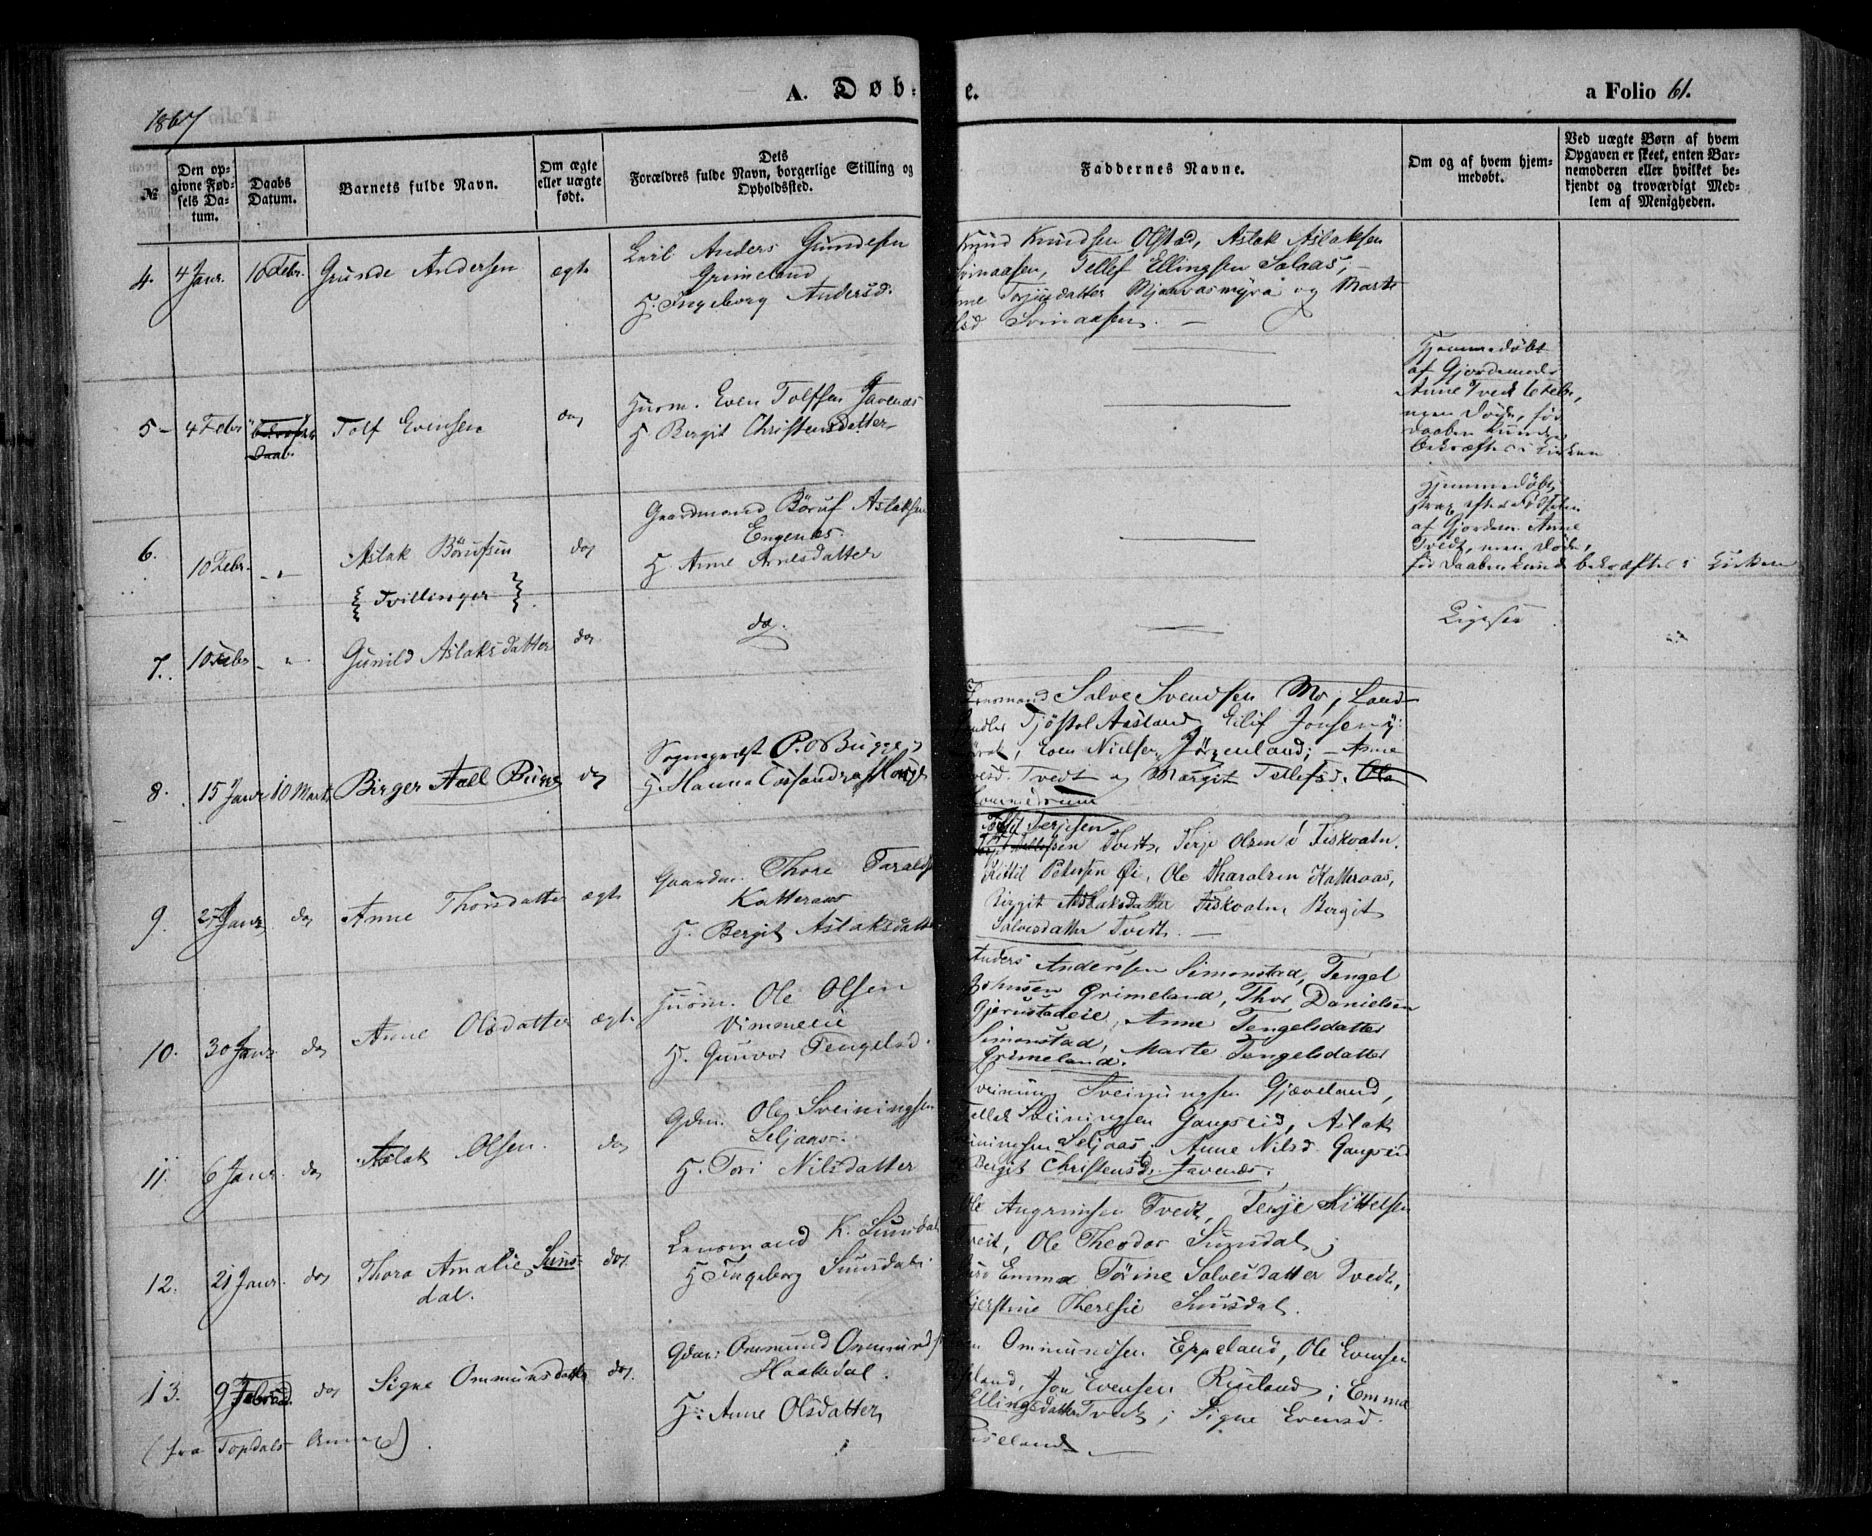 1867
A. Døb-
e.
a Folio 61.
№
Den op-
givne Fød-
sels Da-
tum.
Daabs
Datum.
Barnets fulde Navn.
Om ægte
eller uægte
født.
Dets
Forældres fulde Navn, borgerlige Stilling og
Opholdssted.
Faddernes Navne.
Om og af hvem hjem-
medøbt.
Ved uægte Børn af hvem
Opgaven er skeet, enten Bar-
nemoderen eller hvilket be-
kjendt og troværdigt Med-
lem af Menigheden.
4. 4 Janr. 10 Febr. Grunde Andersen ægte
Anders Gundesen
Grimeland
H. Ingeborg Andersd.
Knud Knudsen Olstad, Aslak Aslaksen
Svinaasen, Tellef Ellingsen Solaas,
Torjusdatter Mjaavasmyra og Marte
Svinaasen. —
5 - 4 Febr Tolf Evensen do
Husm. Even Tolfsen Favenæs
H. Bergit Christensdatter
Hjemmedøbt
af Gjordemoder
Anne Tvedt 6 Febr,
men døde, før
Daaben kunde
bekræftes i Kirken
6. 10 Febr. Aslak Börufsen do
Gaardmand Böruf Aslaksen
Engenæs.
H. Anne Arnesdatter
Hjemmedøbt
strax efter Födselen
af Gjordem. Anne
Tvedt, men døde,
før Daaben kunde bekræftes i Kirken
{ Tvillinger }
7. 10 Febr Gunild Aslaksdatter do
do.
Ligesaa
8. 15 Janr 10 Marts Birger Aall Bugge do
Sognepræst P. O Bugge
H. Hanna Cassandra
Lensmand Salve Svendsen Mo, Land-
Tjöstol Aasland, Eilif Jonsen
Even Nielsen Jörgenland; — Anne
Tvedt og Margit Tellefsd. Ola
9. 27 Janr do Anne Thorsdatter ægte
Gaardm. Thore Taralds
Katteraas
H. Bergit Aslaksdatter
Terjesen
Tvedt, Terje Olsen i Fiskvatn.
Kittil Petersen Øi, Ole Tharalsen Katteraas,
Birgit Aslaksdatter Fiskvatn, Bergit
Salvesdatter Tvedt. —
10. 30 Janr do Anne Olsdatter ægte
Husm. Ole Olsen
Vimmeeie
H. Gunvor Tengelsd.
Anders Andersen Simonstad, Tengel
Johnsen Grimeland, Thor Danielsen
Gjerustadeie, Anne Tengelsdatter
Simonstad, Marte Tengelsdatter
Grimeland.
11. 6 Janr. do Aslak Olsen. do
Gdm. Ole Sveiningsen
Seljaas.
H. Tori Nilsdatter
Sveinung Sveinungsen Gjæveland,
Tellef Sveiningsen Gangseid, Aslak
Seljaas, Anne Nilsd. Gangseid
Bergit Christensd. Favenæs.
12. 21 Janr. do Thora Amalie Suns-
dal. do.
Lensmand K. Sunsdal
H. Ingeborg Sunsdal.
Ole Angrimsen Tvedt, Terje Kittelsen
Tveit, Ole Theodor Sunsdal;
Emma Törine Salvesdatter Tvedt,
Kjerstine Theresie Sunsdal.
13. 9 do Signe Ommunsdatter do.
Gdm: Ommund Ommunds
Haakedal.
H: Anne Olsdatter
Ommundsen Eppeland, Ole Evensen
Jon Evensen Risland; Emma
Ellingsdatter Tvedt; Signe Evensd.
Riseland. —
(fra Topdals Annex).